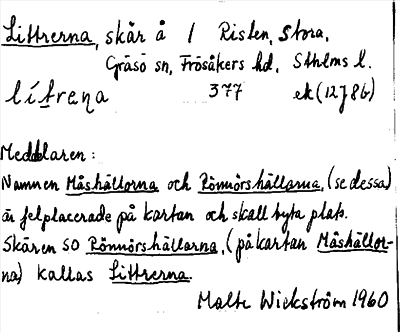 Littrerna, skär å 1 Risten, Stora,
Gräsö sn, Frösåkers hd, Sthlms l.
lítrena 377 ek (12J8b)
Meddelaren:
Namnen Måshällorna och Rönnörshällarna, (se dessa)
är felplacerade på kartan och skall byta plats.
Skären SO Rönnörshällarna, (på kartan Måshällor-
na) kallas Littrerna.
Malte Wickström 1960